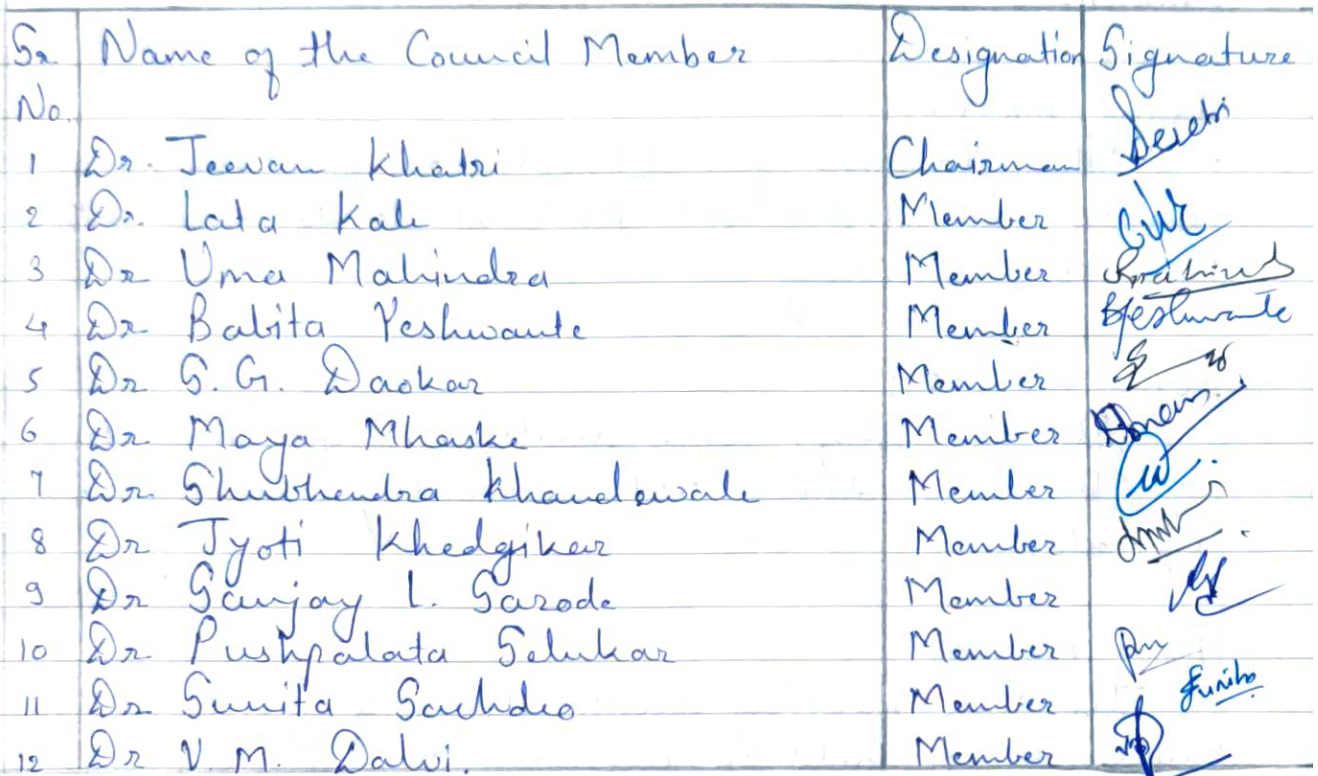 Sr. Name of the Council Member Designation Signature
No.
1 Dr. Jeevan Khatri Chairman
2 Dr. Lata Kale Member
3 Dr Uma Mahindra Member
4 Dr Babita Yeshwante Member Yeshwante
5 Dr S.G. Daokar Member
6 Dr Maya Mhaske Member
7 Dr. Shubhendra Khandewale Member
8 Dr Jyoti Khedgikar Member
9 Dr Sanjay L. Sarode Member
10 Dr Pushpalata Selukar Member
11 Dr Sunita Sachdeo Member
12 Dr V. M. Dalvi. Member